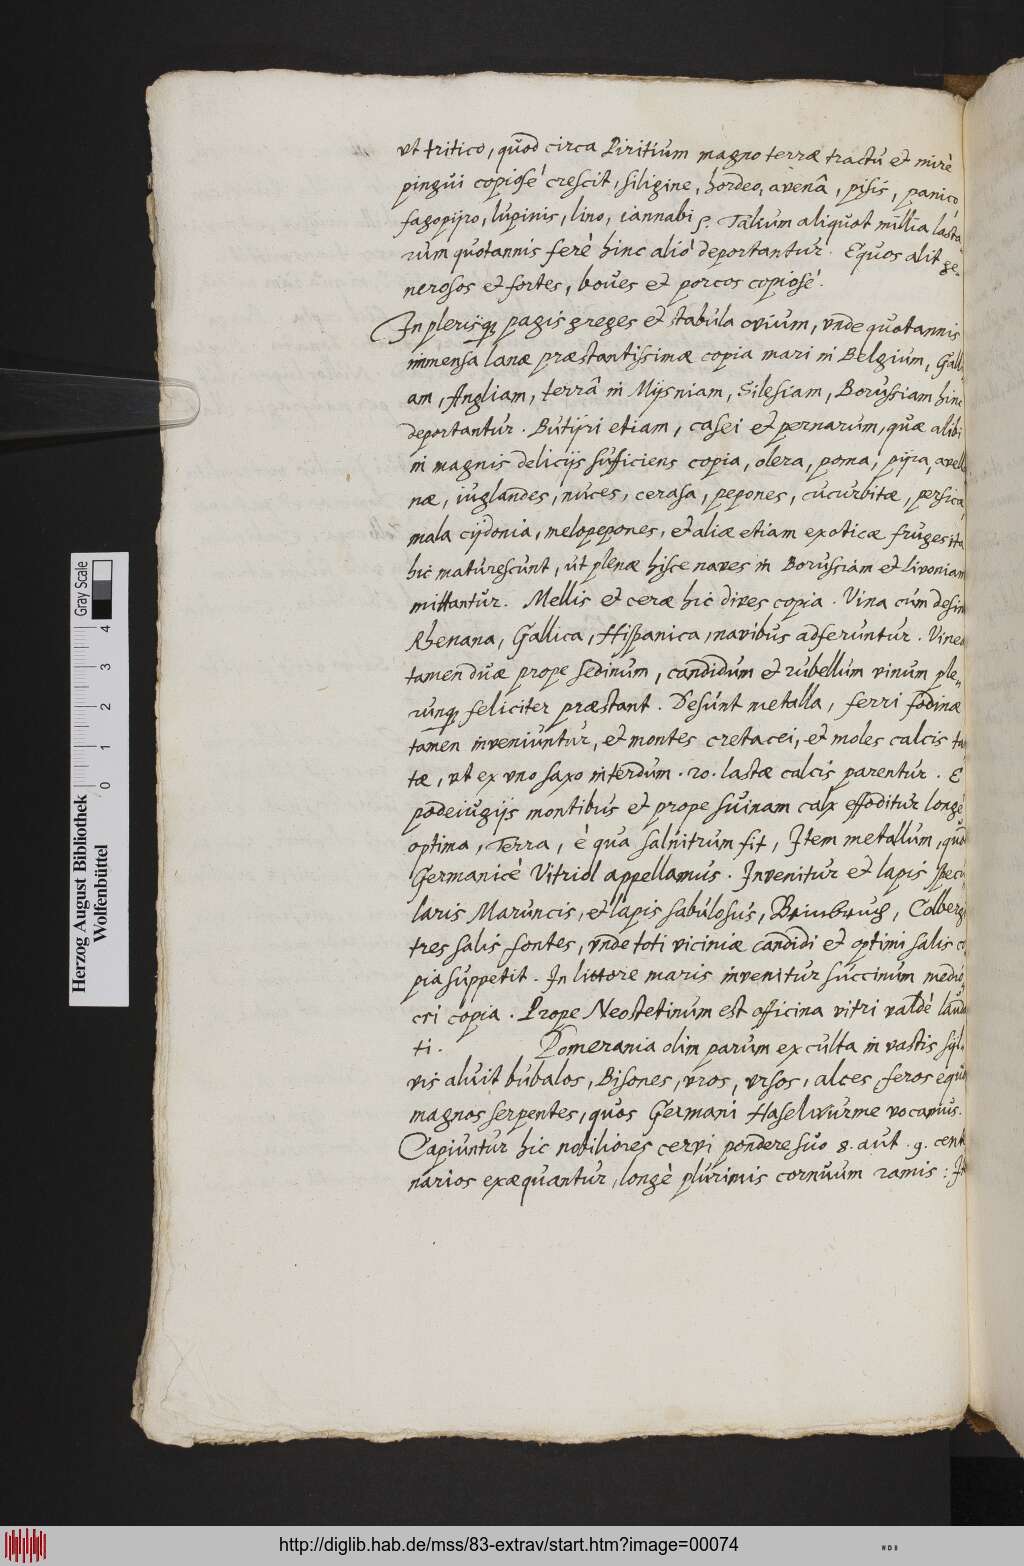 vt tritico, quod circa Piritium magno terræ tractu et mirè
pingui copiosé crescit, siligine, hordeo, avenâ, pisis, panico
fagopyro, lupinis, lino, cannabi ꝭ. Talium aliquot millia lasta-
rum quotannis ferè hinc aliò deportantur. Equos alit ge-
nerosos et fortes, boues et porcos copiosé.
In plerisqꝫ pagis greges et stabula ovium, vnde quotannis
immensa lanæ præstantissimæ copia mari in Belgium, Galli
am, Angliam, terrâ in Mysniam, Silesiam, Borussiam hinc
deportantur. Butyri etiam, casei et pernarum, quæ alibi
in magnis delicijs sufficiens copia, olera, poma, pyra, avella
næ, iuglandes, nuces, cerasa, pepones, cucurbitæ, persica,
mala cydonia, melopepones, et aliæ etiam exoticæ fruges ita
hic maturescunt, ut plenæ hisce naves in Borussiam et Livoniam
mittantur. Mellis et ceræ hic dives copia. Vina cum desin
Rhenana, Gallica, Hispanica, navibus adferuntur. Vineæ
tamen duæ prope Sedinum, candidum et rubellum vinum ple-
runqꝫ feliciter præstant. Desunt metalla, ferri fodinæ
tamen inveniuntur, et montes cretacei, et moles calcis tan
tæ, vt ex vno saxo interdum . 20 . lastæ calcis parentur. E
podeiugijs montibus et prope Suinam calx effoditur longé
optima, Terra, è qua salnitrum fit, Item metallum, quod
Germanicè Vitriol appellamus. Invenitur et lapis specu
laris Maruncis, et lapis sabulosus, Colberg
tres salis fontes, vnde toti viciniæ candidi et optimi salis co
pia suppetit. In littore maris invenitur succinum medio
cri copia. Prope Neostetinum est officina vitri valdè lauda
ti. Pomerania olim parum exculta in vastis syl-
vis aluit bubalos, Bisones, vros, vrsos, alces feros equos
magnos serpentes, quos Germani Haselwurme vocamus.
Capiuntur hic nobiliores cervi pondere suo 8. aut . 9. cente
narios exæquantur, longè plurimis cornuum ramis: It
Herzog August Bibliothek
Wolfenbüttel
0 1 2 3 4
Gray Scale
http://diglib.hab.de/mss/83-extrav/start.htm?image=00074